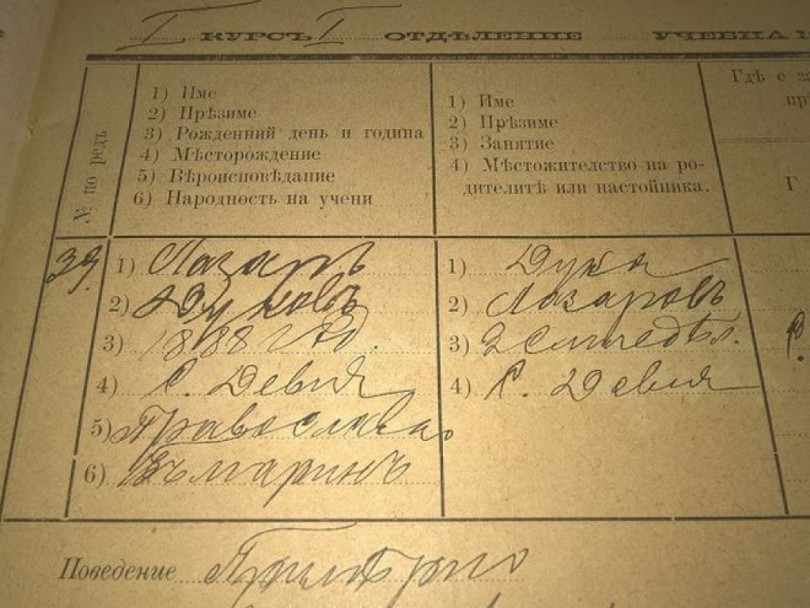 I КУРСЪ I ОТДѢЛЕНИЕ УЧЕБНА 1
№ по редъ
1) Име
2) Прѣзиме
3) Рожденний день и година
4) Мѣсторождение
5) Вѣроисповѣдание
6) Народность на учени
1) Име
2) Прѣзиме
3) Занятие
4) Мѣстожителство на ро-
дителитѣ или настойника.
Гдѣ е за
пр
Г
39.
1) Лазаръ
2) Дуковъ
3) 1888 год.
4) с. Девня
5) Православно
6) Българинъ
1) Дука
2) Лазаровъ
3) Земледѣл.
4) с. Девня
Поведение Примѣрно